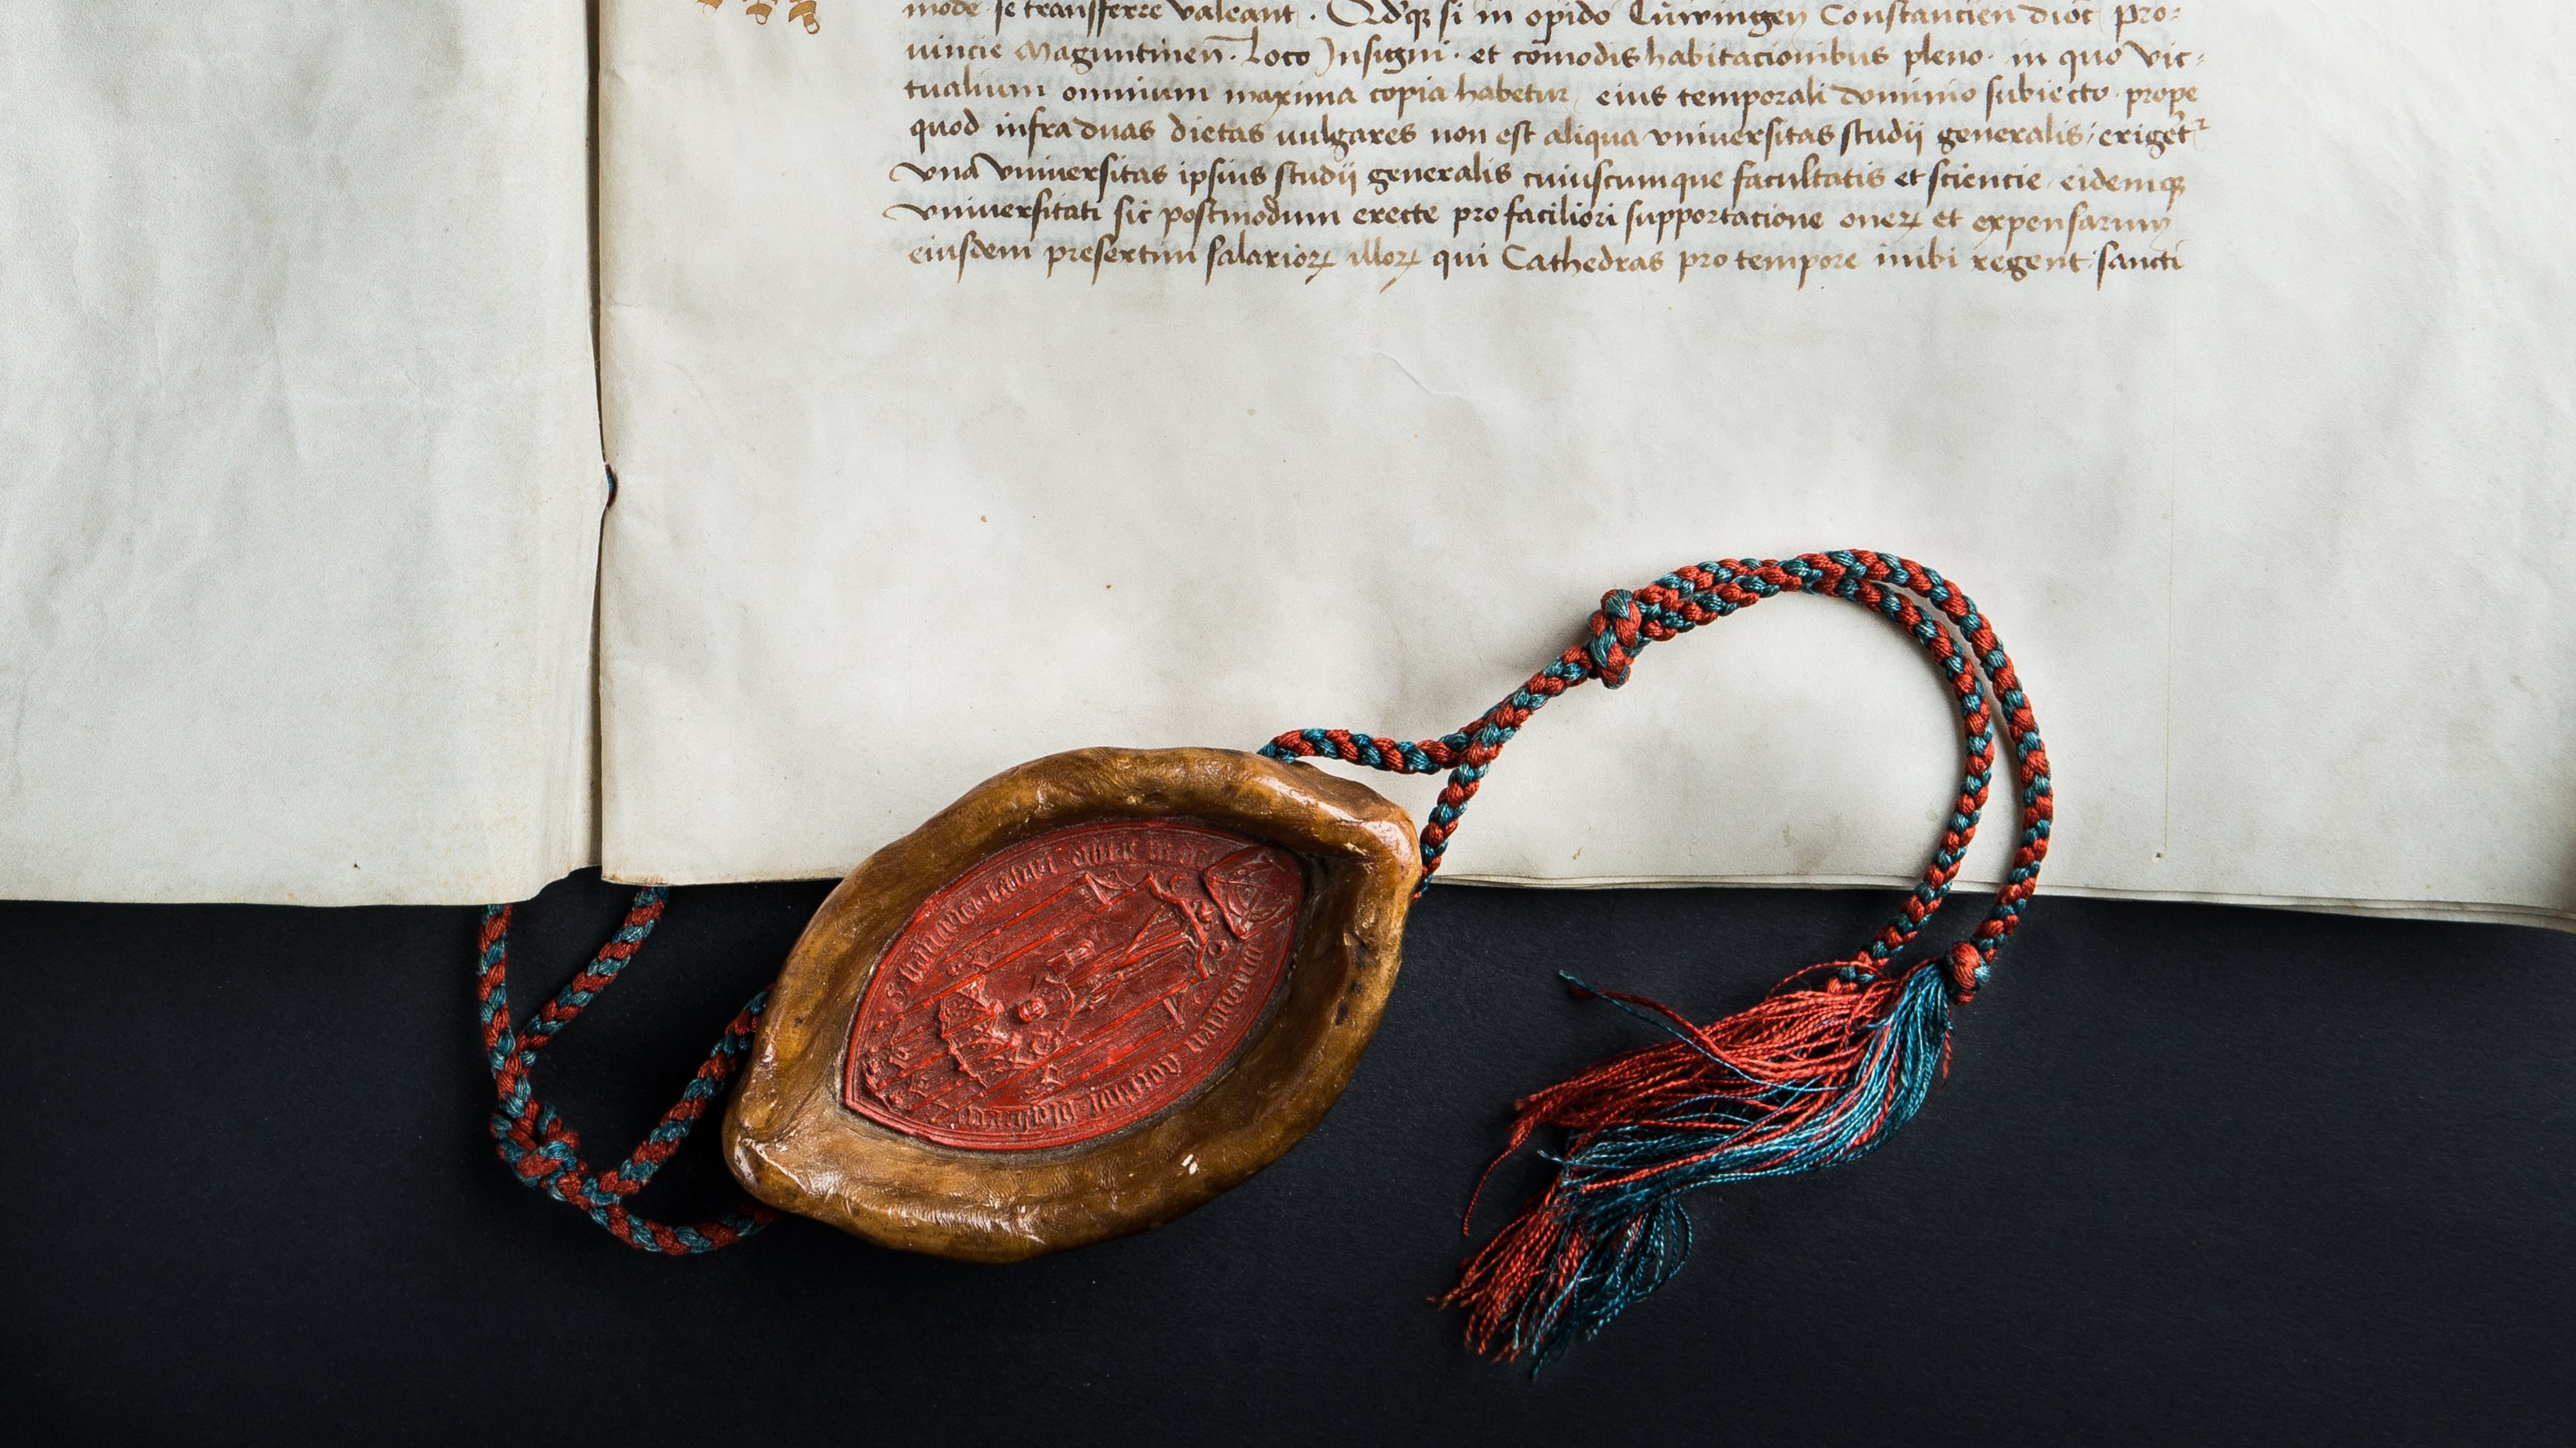 mode se transferre valeant. Qdq̄ si in opido Tüwingen Constantien dioc̄ pro-
uincie Maguntinen̄. Loco Insigni. et cōmodis habitacionibus pleno. in quo vic-
tualium omnium maxima copia habetur, eius temporali dominio subiecto. prope
quod infra duas dietas vulgares non est aliqua vniuersitas studij generalis, eriget᷑
vna Vniuersitas ipsius studij generalis cuiuscumque facultatis et sciencie, eidemqꝫ
vniuersitati sic postmodum erecte pro faciliori supportacione onerꝝ et expensarum
eiusdem presertim salariorꝝ illorꝝ qui Cathedras pro tempore inibi regent, sancti